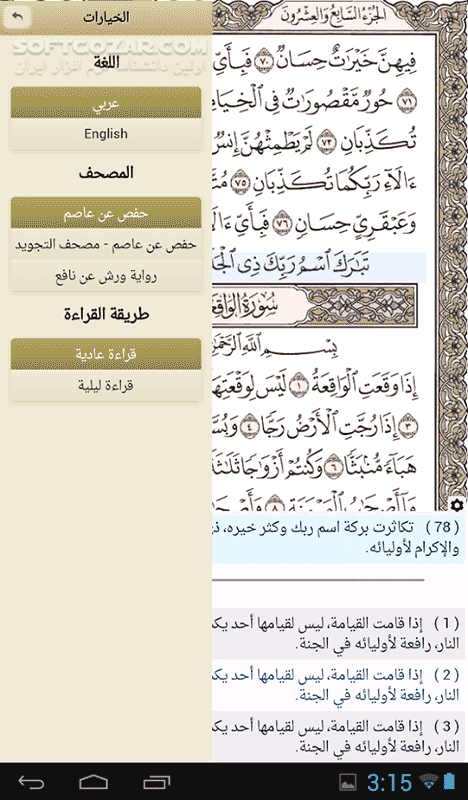 الخيارات
SOFTGOZAR.COM
اللغة
عربي
English
المصحف
حفص عن عاصم
حفص عن عاصم - مصحف التجويد
رواية ورش عن نافع
طريقة القراءة
قراءة عادية
قراءة ليلية
الجزء السابع والعشرون
فِيهِنَّ خَيْرَٰتٌ حِسَانٌ ٧٠ فَبِأَيِّ
٧١ حُورٌ مَّقْصُورَٰتٌ فِى ٱلْخِيَامِ
تُكَذِّبَانِ ٧٣ لَمْ يَطْمِثْهُنَّ إِنسٌ
ءَالَآءِ رَبِّكُمَا تُكَذِّبَانِ ٧٥
وَعَبْقَرِىٍّ حِسَانٍ ٧٦ فَبِأَيِّ ءَالَآ
تَبَٰرَكَ ٱسْمُ رَبِّكَ ذِى
سورة الواقع
بِسْمِ ٱللَّهِ
إِذَا وَقَعَتِ ٱلْوَاقِعَةُ ١ لَيْسَ لِوَقْعَتِهَا
٣ إِذَا رُجَّتِ ٱلْأَرْضُ رَجًّا ٤
هَبَآءً مُّنۢبَثًّا ٦ وَكُنتُمْ أَزْوَٰجًا ثَلَٰثَة
( 78 ) تكاثرت بركة اسم ربك وكثر خيره،
والإكرام لأوليائه.
( 1 ) إذا قامت القيامة، ليس لقيامها أحد يك
النار، رافعة لأوليائه في الجنة.
( 2 ) إذا قامت القيامة، ليس لقيامها أحد يك
النار، رافعة لأوليائه في الجنة.
( 3 ) إذا قامت القيامة، ليس لقيامها أحد يك
النار، رافعة لأوليائه في الجنة.
3:15